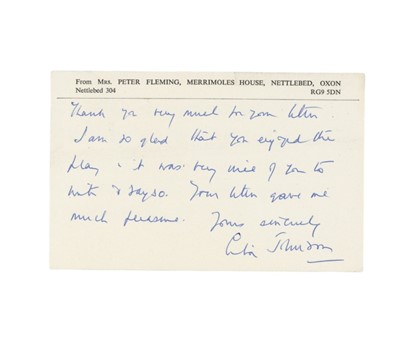 From Mrs. PETER FLEMING, MERRIMOLES HOUSE, NETTLEBED, OXON
Nettlebed 304 RG9 5DN
Thank you very much for your letter.
I am so glad that you enjoyed the
play & it was very nice of you to
write & say so. Your letter gave me
much pleasure. Yours sincerely
Celia Johnson